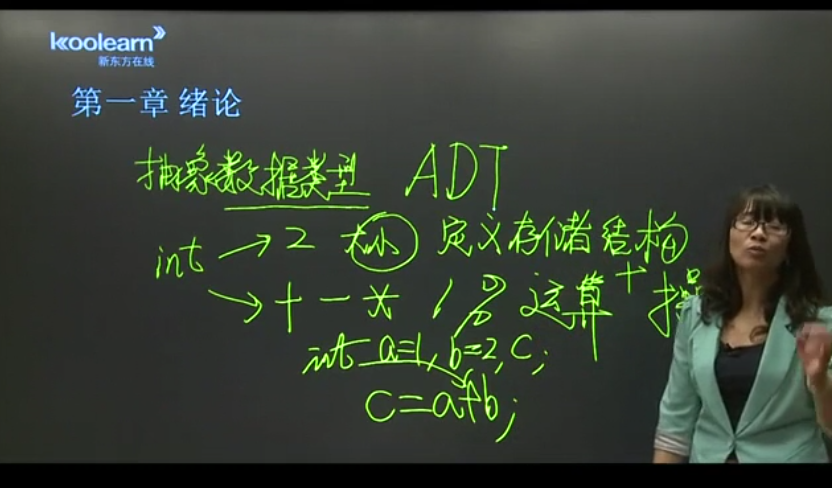 koolearn
新东方在线
第一章 绪论
抽象数据类型 ADT
int → 2 大小 定义存储结构
→ + - * / % 运算 + 操
int a=1, b=2, c;
c=a+b;